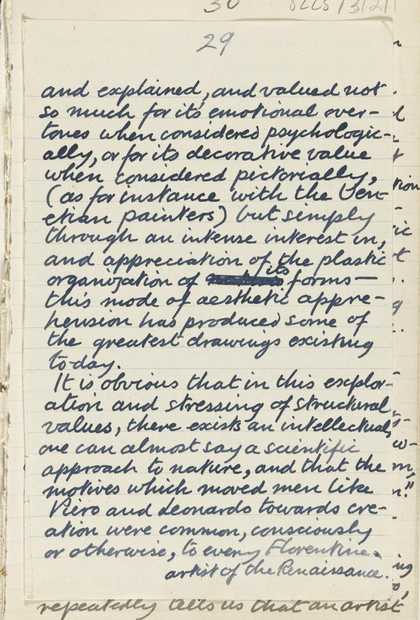 30
29
and explained, and valued not
so much for its emotional over-
tones when considered psychologic-
ally, or for its decorative value
when considered pictorially,
(as for instance with the Ven-
etian painters) but simply
through an intense interest in,
and appreciation of the plastic
organization of its forms—
this mode of aesthetic appre-
hension has produced some of
the greatest drawings existing
today.
It is obvious that in this explor-
ation and stressing of structural
values, there exists an intellectual,
one can almost say a scientific
approach to nature, and that the
motives which moved men like
Piero and Leonardo towards cre-
ation were common, consciously
or otherwise, to every Florentine
artist of the Renaissance.
repeatedly tells us that an artist